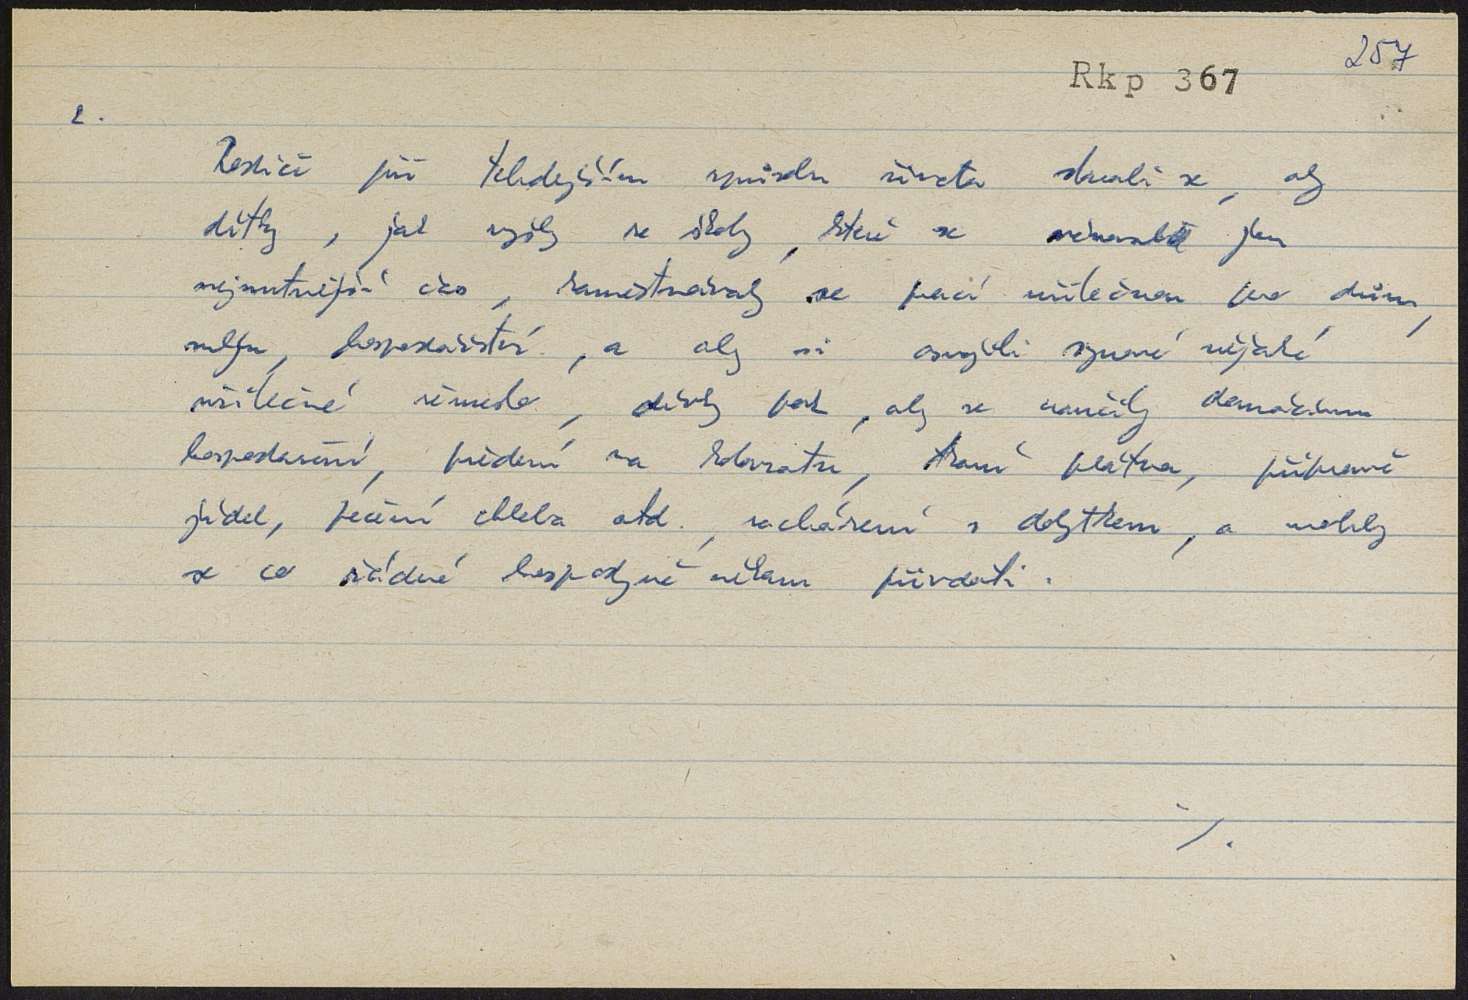 257
Rkp 367
2.
Rodiče při tehdejším způsobu života starali se, aby
dítky, jak vyšly ze školy, které se věnoval jen
nejnutnější čas, zaměstnávaly se prací užitečnou pro dům,
mlýn, hospodářství, a aby si osvojili synové nějaké
užitečné řemeslo, dívky pak, aby se naučily domácímu
hospodaření, předení na kolovratu, tkaní plátna, přípravě
jídel, pečení chleba atd., zacházení s dobytkem, a mohly
se co řádné hospodyně někam přivdati.
./.